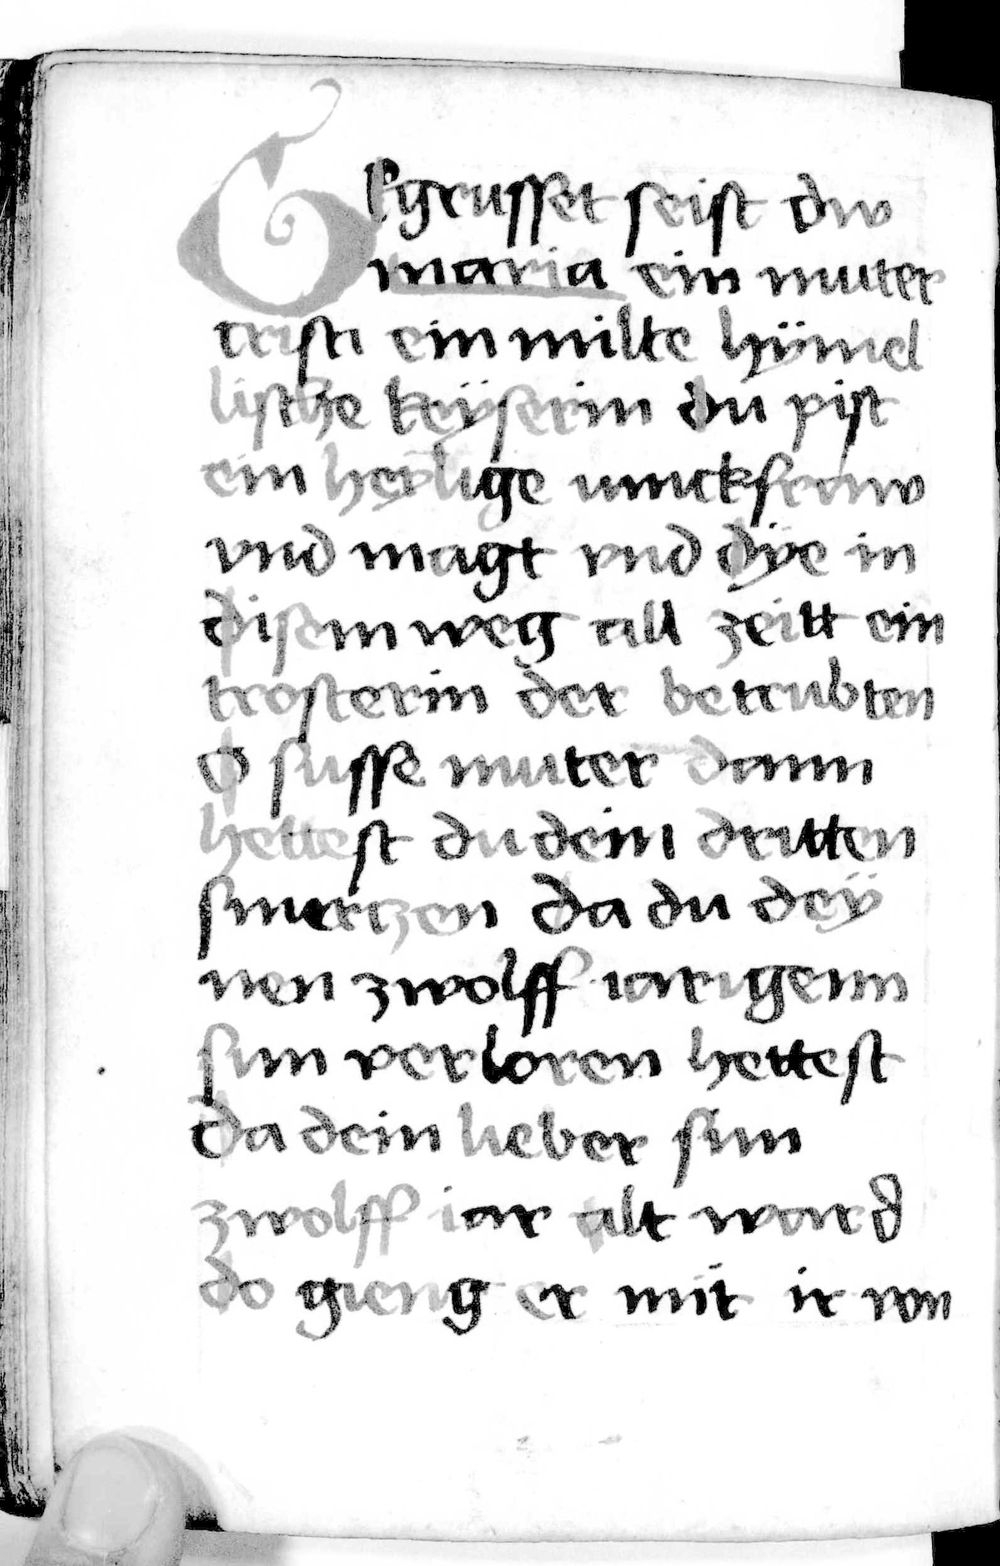 Gegrusset seist dw
maria ein muter
cristi ein milte hÿmel
lische keÿserin du pist
ein herlige iunckfraw
vnd magt vnd dÿe in
disem weg all zeitt ein
trosterin der betrubten
O susse muter dann
hettest du dein dritten
smertzen da du deÿ
nen zwolff iarigenn
sun verloren hettest
da dein lieber sun
zwolff iar alt ward
do gieng er mit ir von